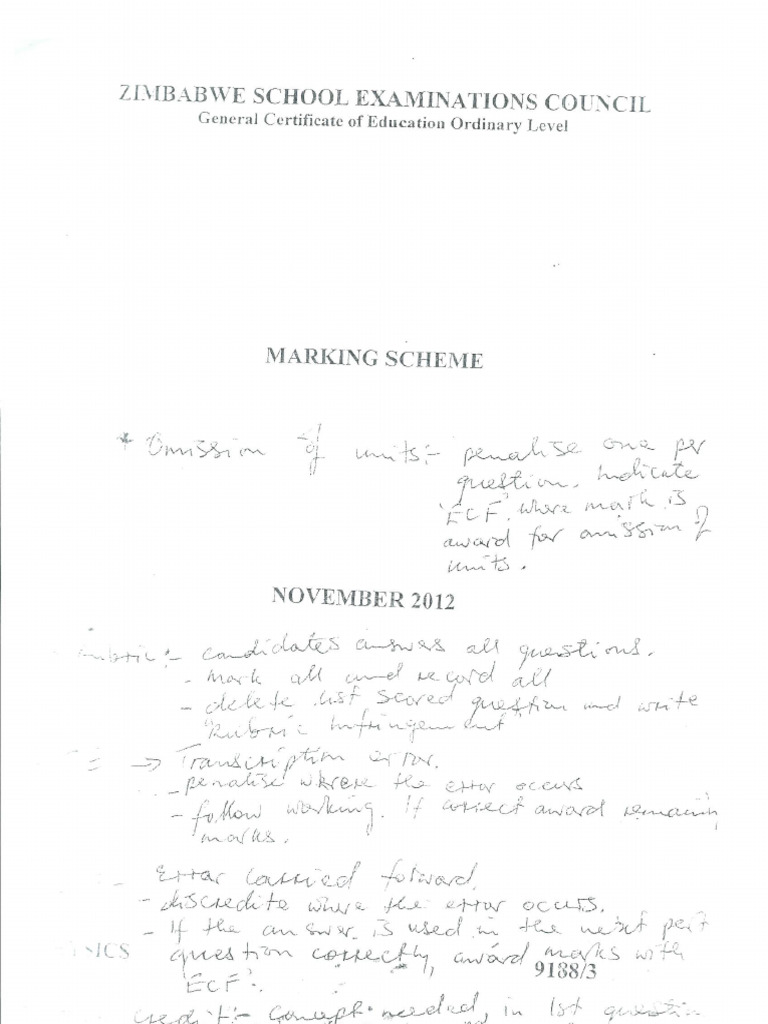 ZIMBABWE SCHOOL EXAMINATIONS COUNCIL
General Certificate of Education Ordinary Level
MARKING SCHEME
* Omission of units:- penalise one per
question. Indicate
'ECF' where mark is
award for omission of
units.
NOVEMBER 2012
candidates answers all questions.
- Mark all and record all
- delete scored question and write
Rubric Infringement
→ Transcription error.
- penalise where the error occurs
- follow working. If correct award remaining
marks.
Error carried forward.
- discredite where the error occurs.
- If the answer is used in the next part
question correctly, award marks with
'ECF'.
SICS
9188/3
Credit:- Concept needed, in 1st question